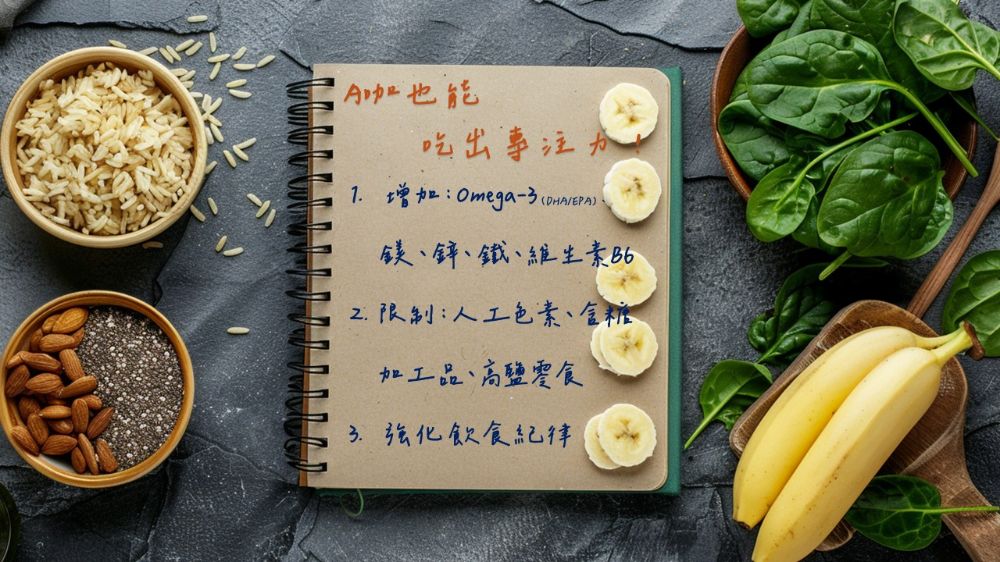 A咖也能
吃出專注力!
1. 增加:Omega-3(DHA/EPA)
鎂、鋅、鐵、維生素B6
2. 限制:人工色素、含糖
加工品、高鹽零食
3. 強化飲食紀律